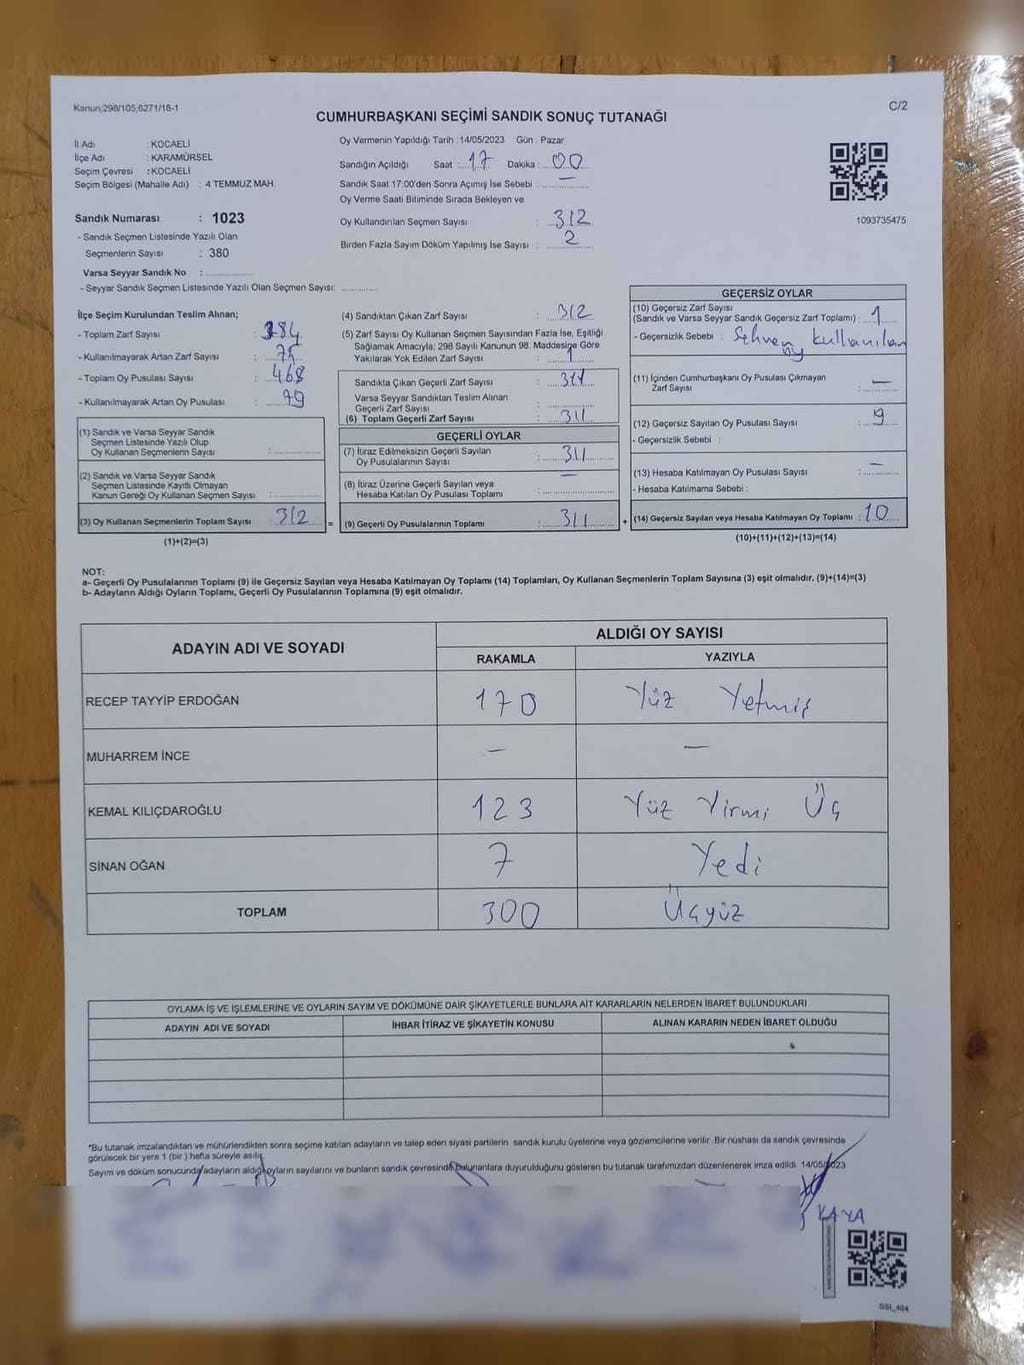 Kanun;298/105;6271/18-1
C/2
CUMHURBAŞKANI SEÇİMİ SANDIK SONUÇ TUTANAĞI
İl Adı : KOCAELİ
İlçe Adı : KARAMÜRSEL
Seçim Çevresi : KOCAELİ
Seçim Bölgesi (Mahalle Adı) : 4 TEMMUZ MAH.
Sandık Numarası : 1023
- Sandık Seçmen Listesinde Yazılı Olan
Seçmenlerin Sayısı : 380
Varsa Seyyar Sandık No :
- Seyyar Sandık Seçmen Listesinde Yazılı Olan Seçmen Sayısı:
Oy Vermenin Yapıldığı Tarih :14/05/2023 Gün : Pazar
Sandığın Açıldığı Saat : 17 Dakika : 00
Sandık Saat 17:00'den Sonra Açımış İse Sebebi : —
Oy Verme Saati Bitiminde Sırada Bekleyen ve
Oy Kullandırılan Seçmen Sayısı : 312
Birden Fazla Sayım Döküm Yapılmış İse Sayısı : 2
1093735475
İlçe Seçim Kurulundan Teslim Alınan;
- Toplam Zarf Sayısı : 384
- Kullanılmayarak Artan Zarf Sayısı :
- Toplam Oy Pusulası Sayısı : 468
- Kullanılmayarak Artan Oy Pusulası : 79
(1) Sandık ve Varsa Seyyar Sandık
Seçmen Listesinde Yazılı Olup
Oy Kullanan Seçmenlerin Sayısı :
(2) Sandık ve Varsa Seyyar Sandık
Seçmen Listesinde Kayıtlı Olmayan
Kanun Gereği Oy Kullanan Seçmen Sayısı :
(3) Oy Kullanan Seçmenlerin Toplam Sayısı : 312
(1)+(2)=(3)
=
(4) Sandıktan Çıkan Zarf Sayısı : 312
(5) Zarf Sayısı Oy Kullanan Seçmen Sayısından Fazla İse, Eşitliği
Sağlamak Amacıyla; 298 Sayılı Kanunun 98. Maddesine Göre
Yakılarak Yok Edilen Zarf Sayısı : 1
Sandıkta Çıkan Geçerli Zarf Sayısı : 311
Varsa Seyyar Sandıktan Teslim Alınan
Geçerli Zarf Sayısı :
(6) Toplam Geçerli Zarf Sayısı : 311
GEÇERLİ OYLAR
(7) İtiraz Edilmeksizin Geçerli Sayılan
Oy Pusulalarının Sayısı : 311
(8) İtiraz Üzerine Geçerli Sayılan veya
Hesaba Katılan Oy Pusulası Toplamı : —
(9) Geçerli Oy Pusulalarının Toplamı : 311
+
GEÇERSİZ OYLAR
(10) Geçersiz Zarf Sayısı
(Sandık ve Varsa Seyyar Sandık Geçersiz Zarf Toplamı) : 1
- Geçersizlik Sebebi : Sehven kullanılan
oy
(11) İçinden Cumhurbaşkanı Oy Pusulası Çıkmayan
Zarf Sayısı : —
(12) Geçersiz Sayılan Oy Pusulası Sayısı : 9
- Geçersizlik Sebebi :
(13) Hesaba Katılmayan Oy Pusulası Sayısı : —
- Hesaba Katılmama Sebebi :
(14) Geçersiz Sayılan veya Hesaba Katılmayan Oy Toplamı : 10
(10)+(11)+(12)+(13)=(14)
NOT:
a- Geçerli Oy Pusulalarının Toplamı (9) ile Geçersiz Sayılan veya Hesaba Katılmayan Oy Toplamı (14) Toplamları, Oy Kullanan Seçmenlerin Toplam Sayısına (3) eşit olmalıdır. (9)+(14)=(3)
b- Adayların Aldığı Oyların Toplamı, Geçerli Oy Pusulalarının Toplamına (9) eşit olmalıdır.
ADAYIN ADI VE SOYADI
ALDIĞI OY SAYISI
RAKAMLA YAZIYLA
RECEP TAYYİP ERDOĞAN 170 Yüz Yetmiş
MUHARREM İNCE — —
KEMAL KILIÇDAROĞLU 123 Yüz Yirmi Üç
SİNAN OĞAN 7 Yedi
TOPLAM 300 Üçyüz
OYLAMA İŞ VE İŞLEMLERİNE VE OYLARIN SAYIM VE DÖKÜMÜNE DAİR ŞİKAYETLERLE BUNLARA AİT KARARLARIN NELERDEN İBARET BULUNDUKLARI
ADAYIN ADI VE SOYADI İHBAR İTİRAZ VE ŞİKAYETİN KONUSU ALINAN KARARIN NEDEN İBARET OLDUĞU
*Bu tutanak imzalandıktan ve mühürlendikten sonra seçime katılan adayların ve talep eden siyasi partilerin sandık kurulu üyelerine veya gözlemcilerine verilir .Bir nüshası da sandık çevresinde
görülecek bir yere 1 (bir ) hafta süreyle asılır.
Sayım ve döküm sonucunda adayların aldığı oyların sayılarını ve bunların sandık çevresinde bulunanlara duyurulduğunu gösteren bu tutanak tarafımızdan düzenlenerek imza edildi. 14/05/2023
KAYA
SSI_404